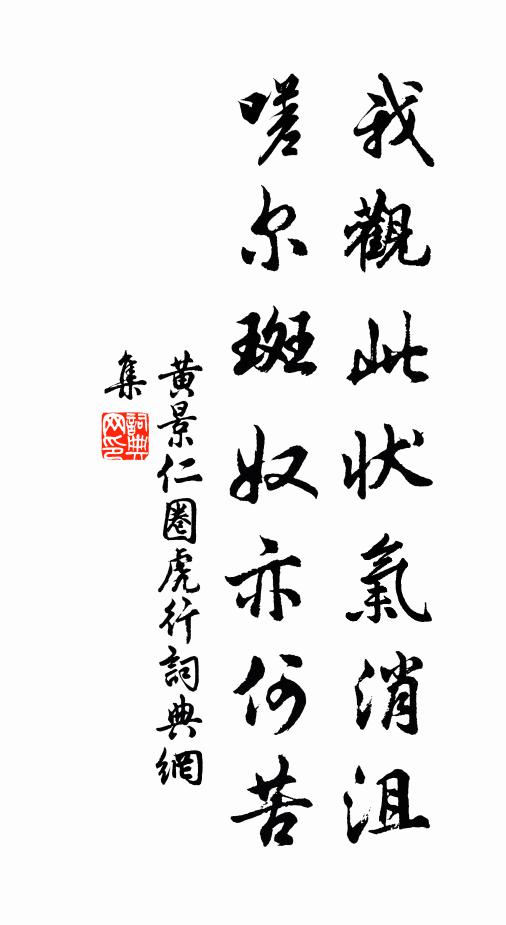 我觀此状氣消沮
嗟尔斑奴亦何苦
黄景仁圈虎行詞典網
集
詞典
网印